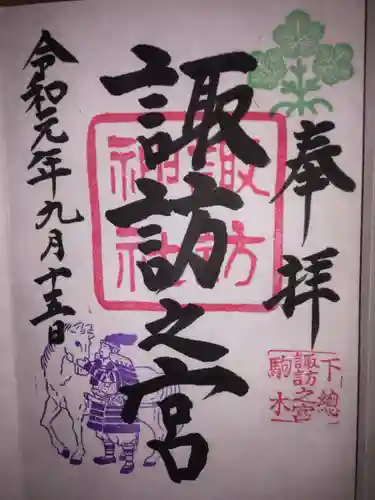 奉拝
下総
諏訪之宮
駒木
諏訪之宮
諏訪
神社
令和元年九月十五日